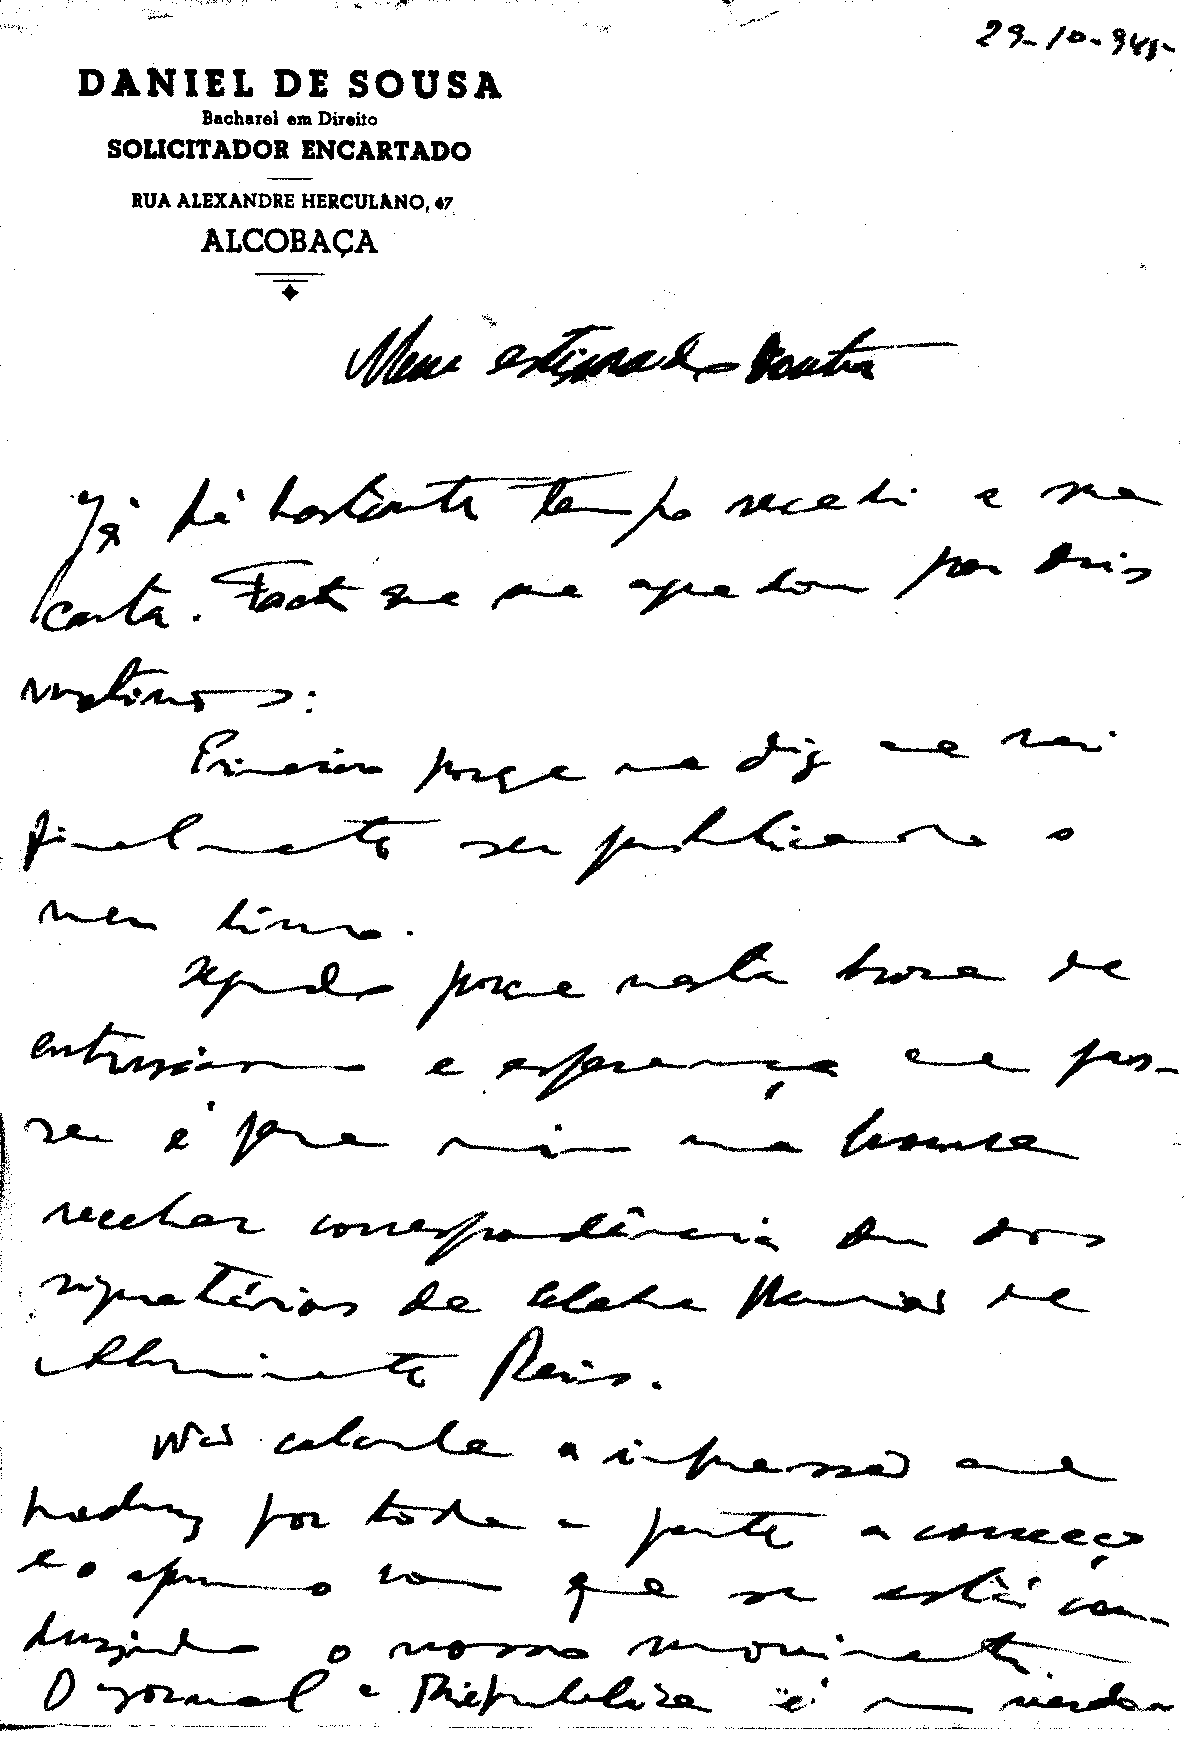 29-10-945
DANIEL DE SOUSA
Bacharel em Direito
SOLICITADOR ENCARTADO
RUA ALEXANDRE HERCULANO, 47
ALCOBAÇA
Meu estimado Doutor
Já há bastante tempo recebi a sua
carta. Facto que me agradou por dois
motivos:
Primeiro porque me diz que vai
finalmente ser publicado o
meu livro.
Segundo porque nesta hora de
entusiasmo e esperança que pas-
sa é para mim uma honra
receber correspondência dum dos
signatários da célebre reunião de
Almirante Reis.
Não calcula a impressão que
produz por toda a parte a correcç
e o aprumo com que se está con-
duzindo o nosso movimento.
O jornal a República é um verda-